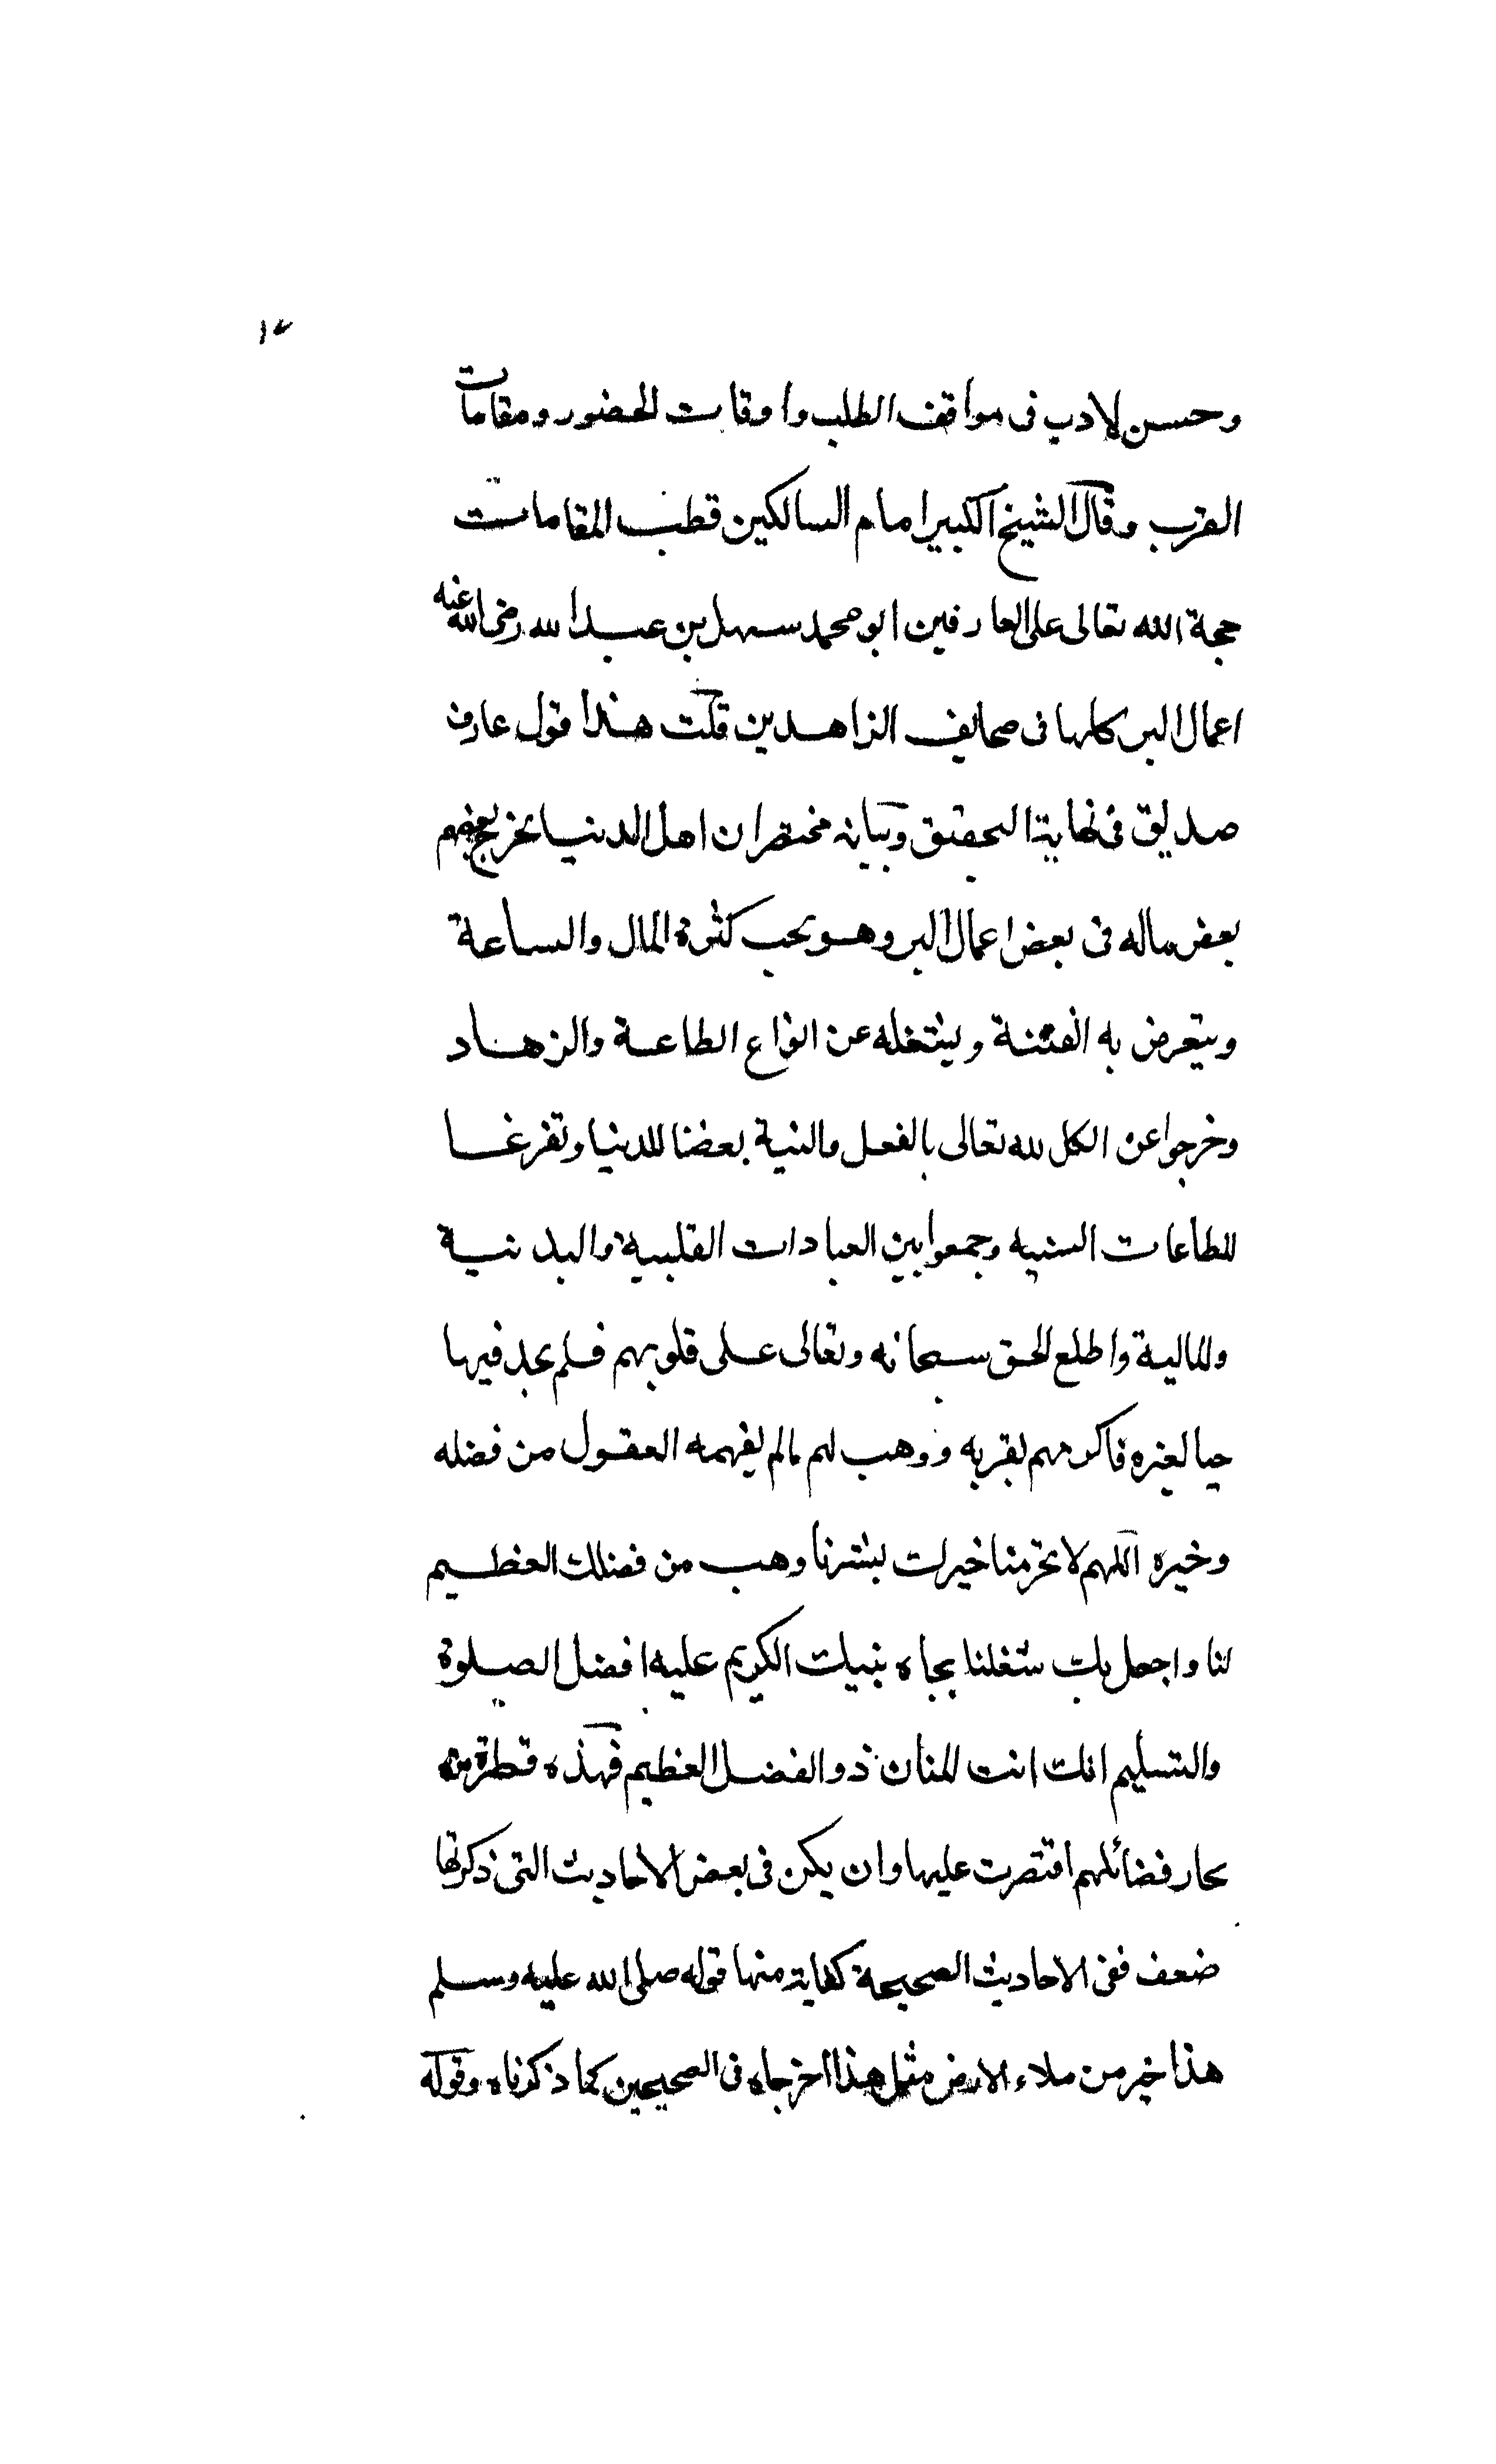 ١٢
وحسن الادب فى مواقف الطلب واوقات الحضور ومقامات
القرب وقال الشيخ الكبير امام السالكين قطب المقامات
حجة الله تعالى على العارفين ابو محمد سهل بن عبد الله رضى الله عنه
اعمال البر كلها فى صحايف الزاهدين قلت هذا قول عارف
صديق فى نهاية التحقيق وبيانه مختصر ان اهل الدنيا يخرج بعضهم
بعض ماله فى بعض اعمال البر وهو يحب كثرة المال والساعة
ويتعرض به الفتنة ويشغله عن انواع الطاعة والزهاد
وخرجوا عن الكل لله تعالى بالفعل والنية بغضا للدنيا وتفرغا
للطاعات السنيه وجمعوا بين العبادات القلبية والبدنية
والمالية واطلع الحق سبحانه وتعالى على قلوبهم فلم يجد فيها
حبا لغيره فاكرمهم بقربه ووهب لهم مالم يفهمه العقول من فضله
وخيره اللهم لا تحرمنا خيرك بشرنا وهب من فضلك العظيم
لنا واجعل بك شغلنا بجاه نبيك الكريم عليه افضل الصلوة
والتسليم انك انت المنان ذو الفضل العظيم فهذه قطرة من
بحار فضائلهم اقتصرت عليها وان يكن فى بعض الاحاديث التى ذكرتها
ضعف ففى الاحاديث الصحيحة كفاية منها قوله صلى الله عليه وسلم
هذا خير من ملاء الارض مثل هذا اخرجاه فى الصحيحين كما ذكرناه وقوله